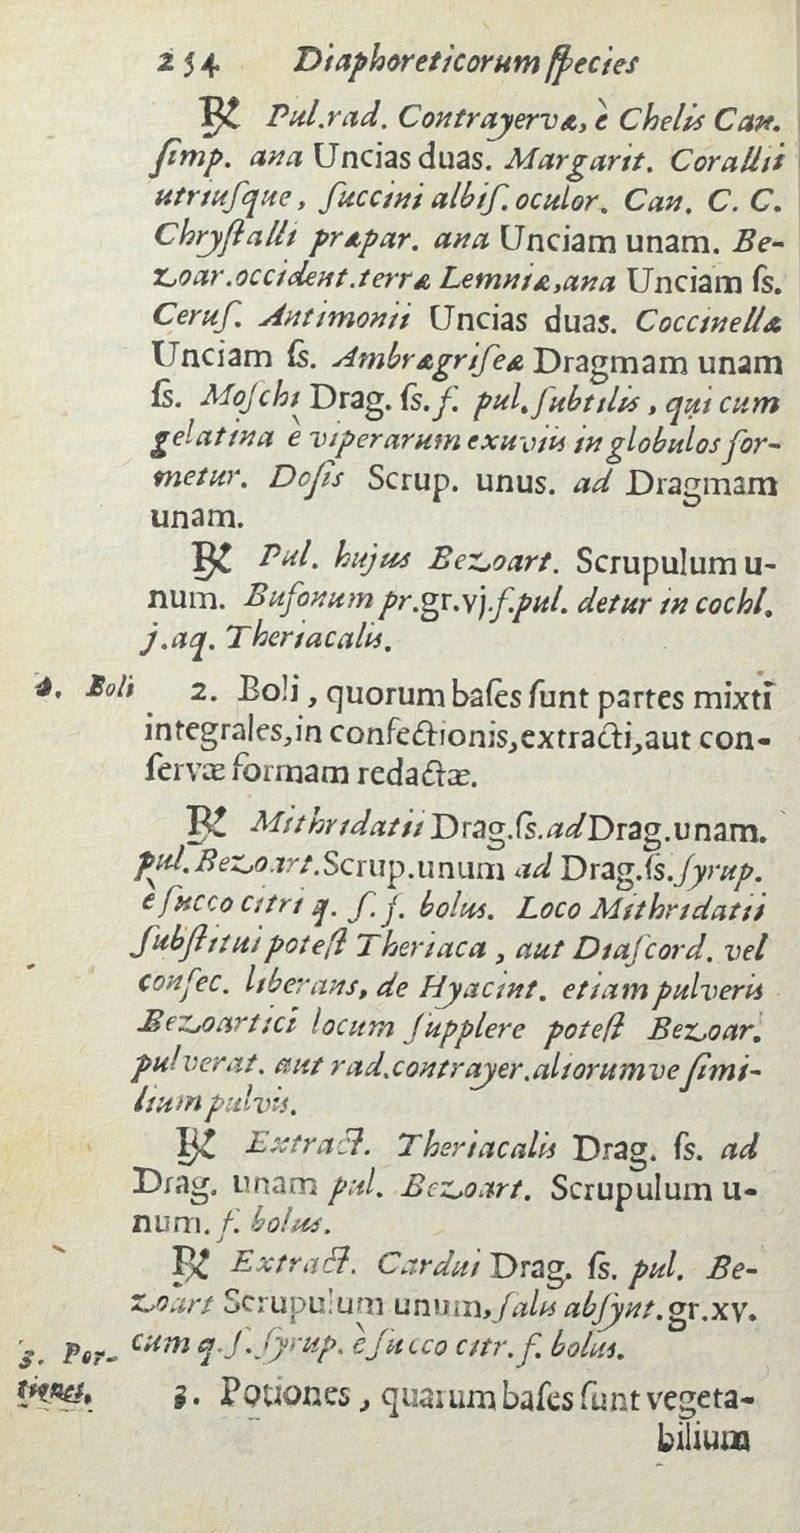 234 Diaphoreticorum ſpecies
℞ Pul.rad. Contrayervæ, è Chelis Can.
ſimp. ana Uncias duas. Margarit. Corallii
utriuſque, ſuccini albiſ. oculor. Can. C. C.
Chryſtalli præpar. ana Unciam unam. Be-
zoar.occident.terræ Lemniæ,ana Unciam ſs.
Ceruſ. Antimonii Uncias duas. Coccinellæ
Unciam ſs. Ambrægriſeæ Dragmam unam
ſs. Moſchi Drag. ſs. f. pul. ſubtilis, qui cum
gelatina è viperarum exuviis in globulos for-
metur. Doſis Scrup. unus. ad Dragmam
unam.
℞ Pul. hujus Bezoart. Scrupulum u-
num. Bufonum pr.gr.vj.f.pul. detur in cochl.
j.aq. Theriacalis.
2. Boli
2. Boli, quorum baſes ſunt partes mixti
integrales,in confectionis,extracti,aut con-
ſervæ formam redactæ.
℞ Mithridatii Drag.ſs.ad Drag.unam.
pul. Bezoart.Scrup.unum ad Drag.ſs.ſyrup.
è ſucco citri q. ſ. f. bolus. Loco Mithridatii
ſubſtitui poteſt Theriaca, aut Diaſcord. vel
confec. liberans, de Hyacint. etiam pulveris
Bezoartici locum ſupplere poteſt Bezoar.
pulverat. aut rad.contrayer.aliorumve ſimi-
lium pulvis.
℞ Extract. Theriacalis Drag. ſs. ad
Drag. unam pul. Bezoart. Scrupulum u-
num. f. bolus.
℞ Extract. Cardui Drag. ſs. pul. Be-
zoart Scrupulum unum, ſalis abſynt.gr.xv.
cum q.ſ. ſyrup. è ſucco citr. f. bolus.
3. Por-
tiones.
3. Potiones, quarum baſes ſunt vegeta-
bilium